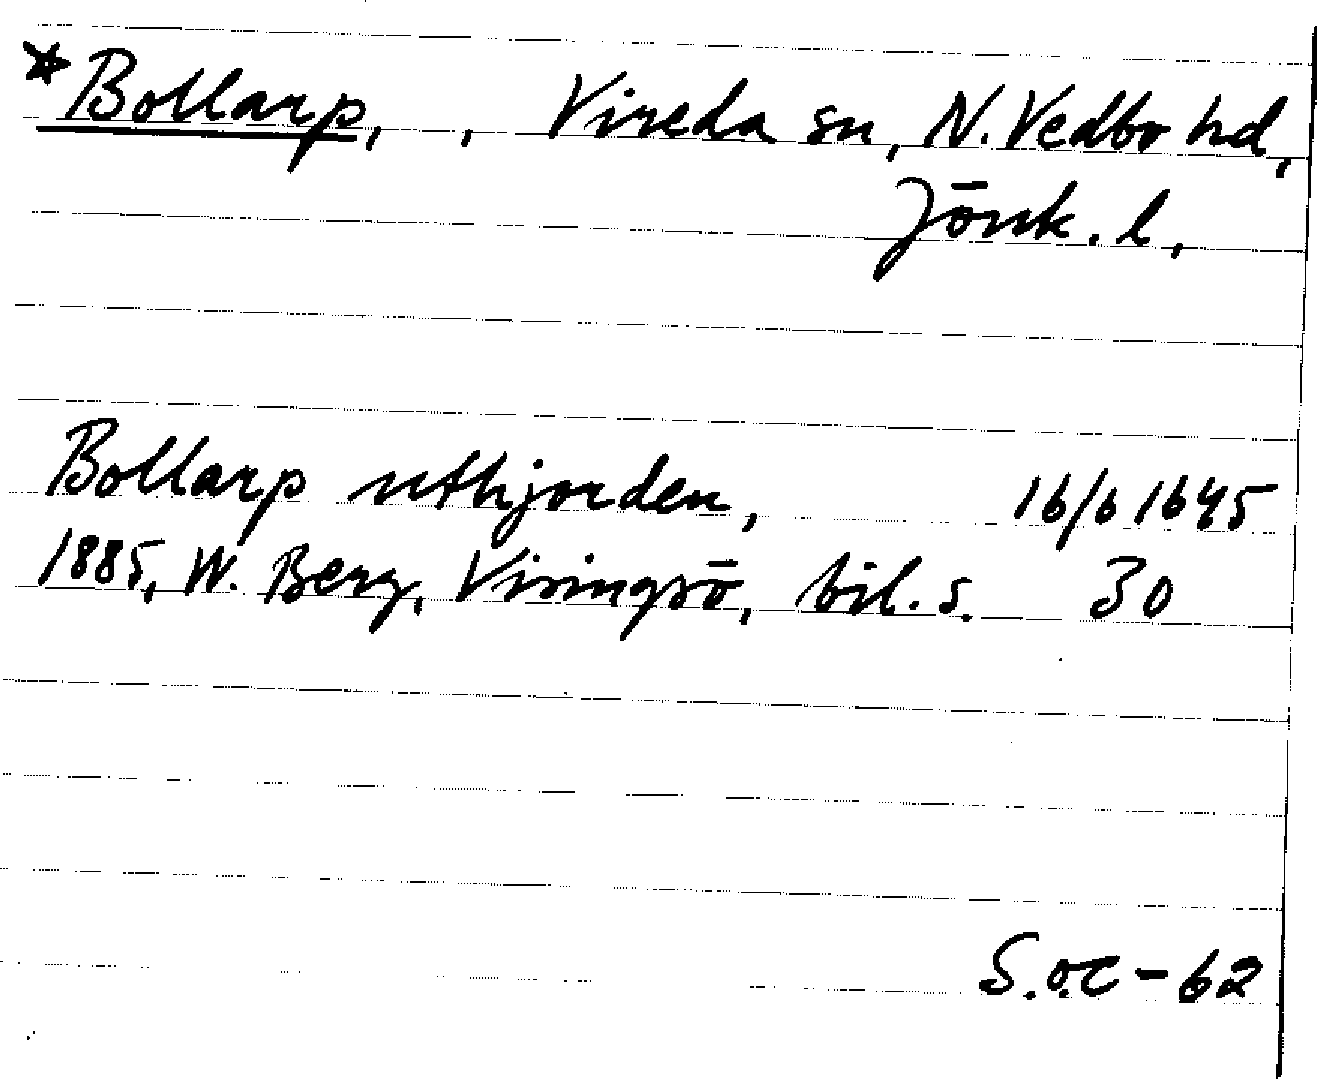 *Bollarp, , Vireda sn, N. Vedbo hd,
Jönk. l,
Bollarp uthjorden, 16/6 1645
1885, W. Berg, Visingsö, bil. s. 30
S.o.C-62